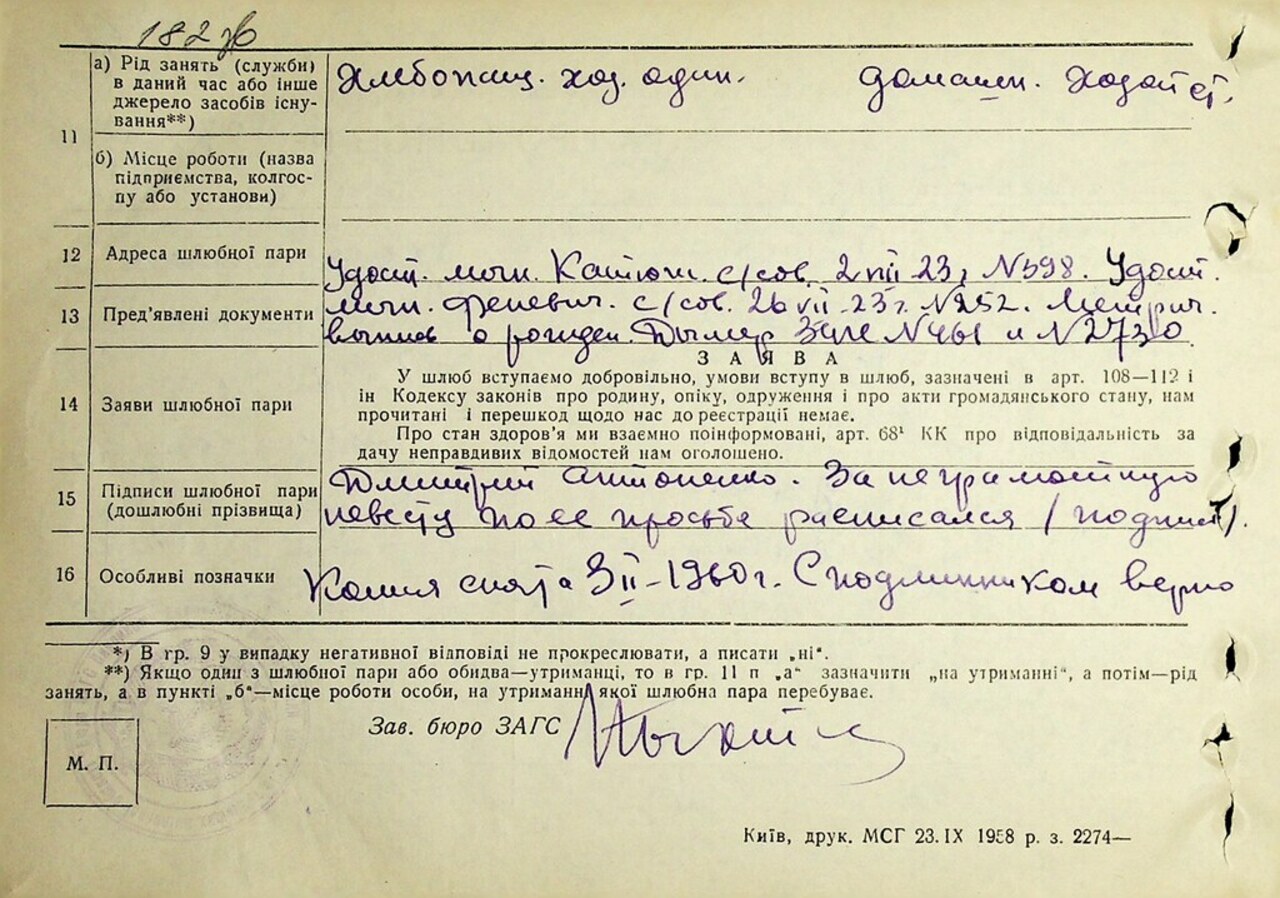 182 об
а) Рід занять (служби) в даний час або інше джерело засобів існування**)
Хлебопаш. хоз. один. домашн. Хозяйст.
11
б) Місце роботи (назва підприємства, колгоспу або установи)
12 Адреса шлюбної пари
Удост. личн. с/сов. 2 VIII 23 г. N 598. Удост.
13 Пред'явлені документи
личн. Феневич. с/сов. 26 VII 23 г. N 252. Метрич.
выпись о рожден. Дымер Загс N 461 и N 2730
З А Я В А
У шлюб вступаємо добровільно, умови вступу в шлюб, зазначені в арт. 108—112 і
14 Заяви шлюбної пари
ін Кодексу законів про родину, опіку, одруження і про акти громадянського стану, нам
прочитані і перешкод щодо нас до реєстрації немає.
Про стан здоров'я ми взаємно поінформовані, арт. 68¹ КК про відповідальність за
дачу неправдивих відомостей нам оголошено.
15 Підписи шлюбної пари (дошлюбні прізвища)
Дмитрий Антоненко. За неграмотную
невесту по ее просьбе расписался (подпись).
16 Особливі позначки
Копия снята 3 II-1960 г. С подлинником верно
*) В гр. 9 у випадку негативної відповіді не прокреслювати, а писати „ні".
**) Якщо один з шлюбної пари або обидва—утриманці, то в гр. 11 п „а" зазначити „на утриманні", а потім—рід
занять, а в пункті „б"—місце роботи особи, на утриманні якої шлюбна пара перебуває.
Зав. бюро ЗАГС
М. П.
Київ, друк. МСГ 23.IX 1958 р. з. 2274—